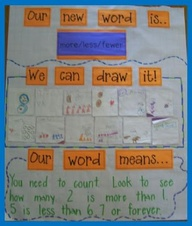 Our new word is...
more/less/fewer
We can draw it!
Our word means...
You need to count. Look to see
how many. 2 is more than 1.
5 is less than 6, 7 or forever.